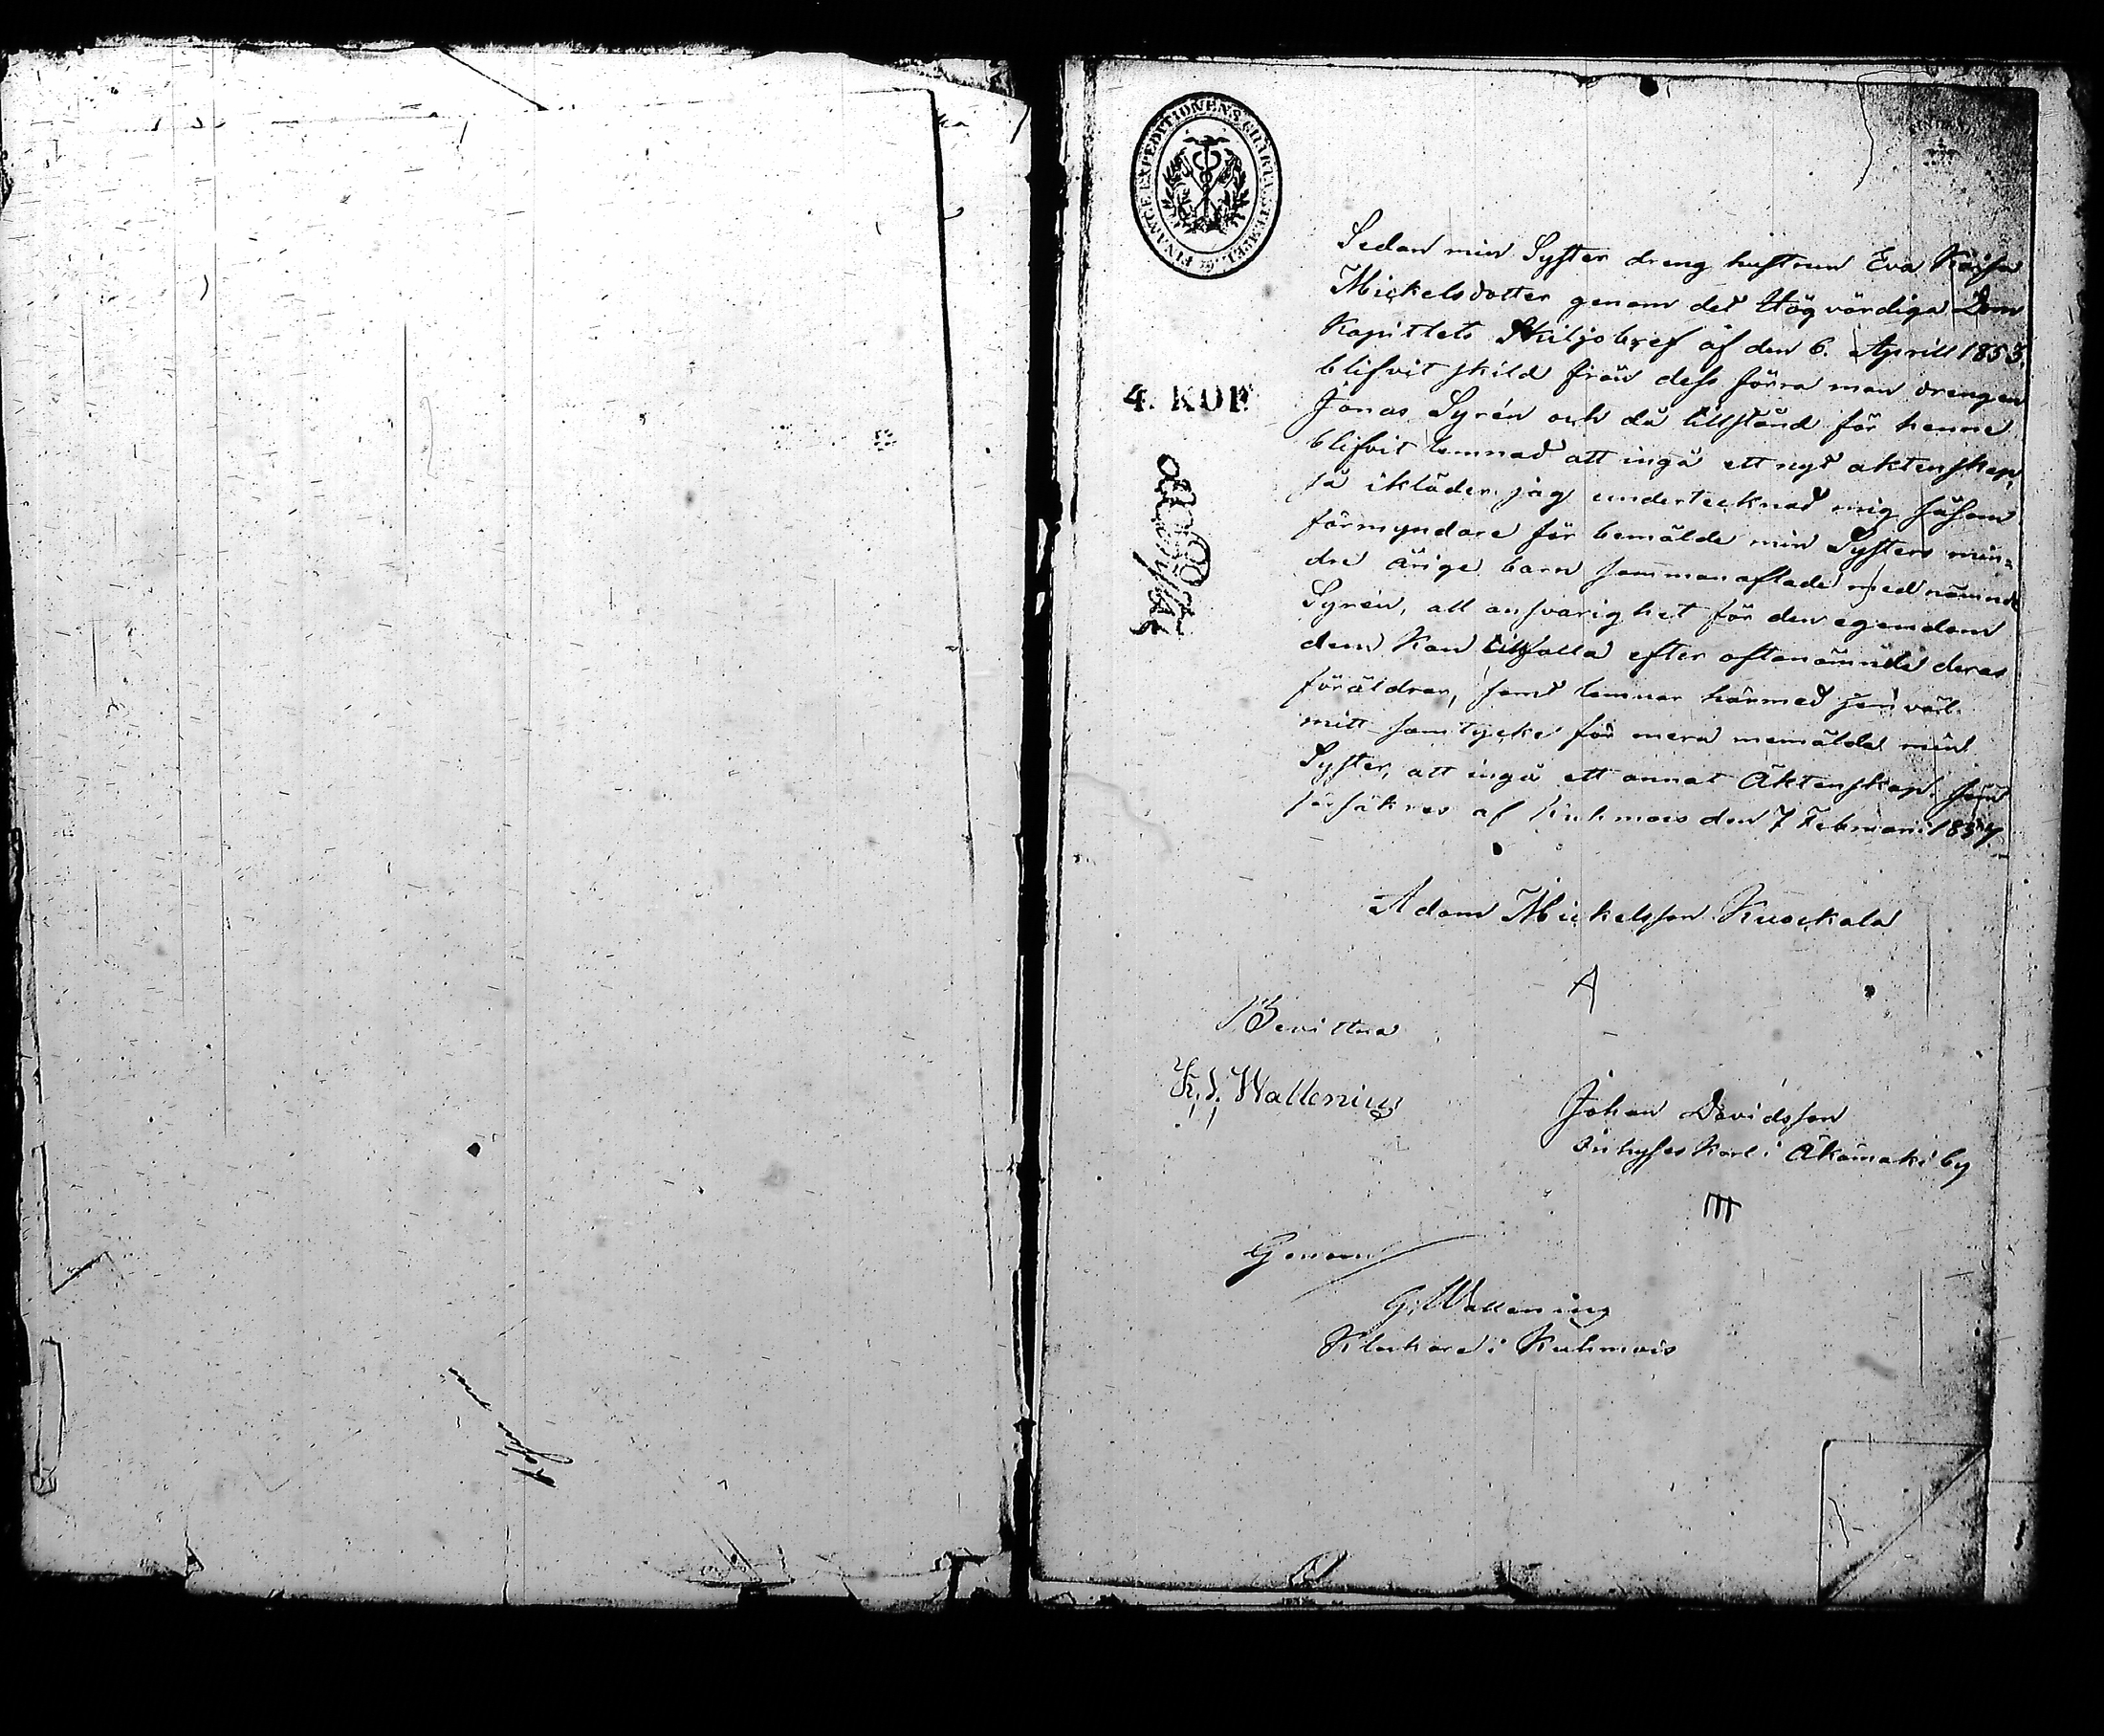 FINANCE EXPEDITIONENS CHARTÆ STEMPEL
4. KOP.
Sedan min Syster dreng hustrun Eva Kaisa
Mickelsdotter genom det Högvördiga Dom
Kapitlets Skiljobref af den 6. Aprill 1853.
blifvit skild från dess förra man drengen
Jonas Syrén och då tillstånd för henne
blifvit lemnad att ingå ett nyt aktenskap,
så ikläder jag undertecknad mig såsom
förmyndare för bemälde min Systers min=
dre årige barn sammanaflade med nämnde
Syrén, all ansvarighet för den egendom
dem Kan tillfalla efter oftanämnde deras
föräldrar, samt lemnar härmed jemväl
mitt samtycke för mera memälde min
Syster, att ingå ett annat Äktenskap. som
försäkras af Kuhmois den 7 Februari 1857.
Adam Mickelsson Kuockala
A
Bevittna
K. J. Wallenius
Johan Davidsson
Inhyses Karl i Äkämäki by
m
Genom
G. Wallenius
Klockare i Kuhmois